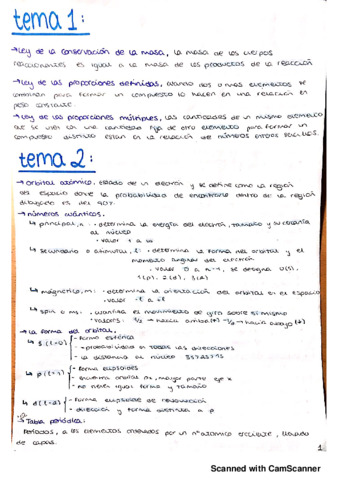 tema 1:
→Ley de la conservación de la masa, la masa de los cuerpos
reaccionantes es igual a la masa de los productos de la reacción
→Ley de las proporciones definidas, cuando dos o más elementos se
combinan para formar un compuesto lo hacen en una relación en
peso constante.
→Ley de las proporciones múltiples, las cantidades de un mismo elemento
que se unen con una cantidad fija de otro elemento para formar un
compuesto distinto están en la relación de números enteros sencillos.
tema 2:
→orbital atómico, estado de un electrón y se define como la región
del espacio donde la probabilidad de encontrarlo dentro de la región
dibujada es del 90%.
→números cuánticos.
↳ principal, n: · determina la energía del electrón, tamaño y su cercanía
al núcleo
· valor 1 a ∞
↳ secundario o azimutal, l: · determina la forma del orbital y el
momento angular del electrón
· valor 0 a n-1, se designa 0(s),
1(p), 2(d), 3(f)
↳ magnético, m: · determina la orientación del orbital en el espacio
· valor -l a +l
↳ spin o ms · cuantiza el movimiento de giro sobre sí mismo
→La forma del orbital,
↳ s (l=0) - forma esférica
- probabilidad en todas las direcciones
- la distancia al núcleo
↳ p (l=1) - forma elipsoides
- no tienen igual forma y tamaño
↳ d (l=2) - forma elipsoide de revolución
- dirección y forma distinta a p
Tabla periódica:
Períodos, a los elementos ordenados por un nº atómico creciente, llenado
de capas.
1
Scanned with CamScanner